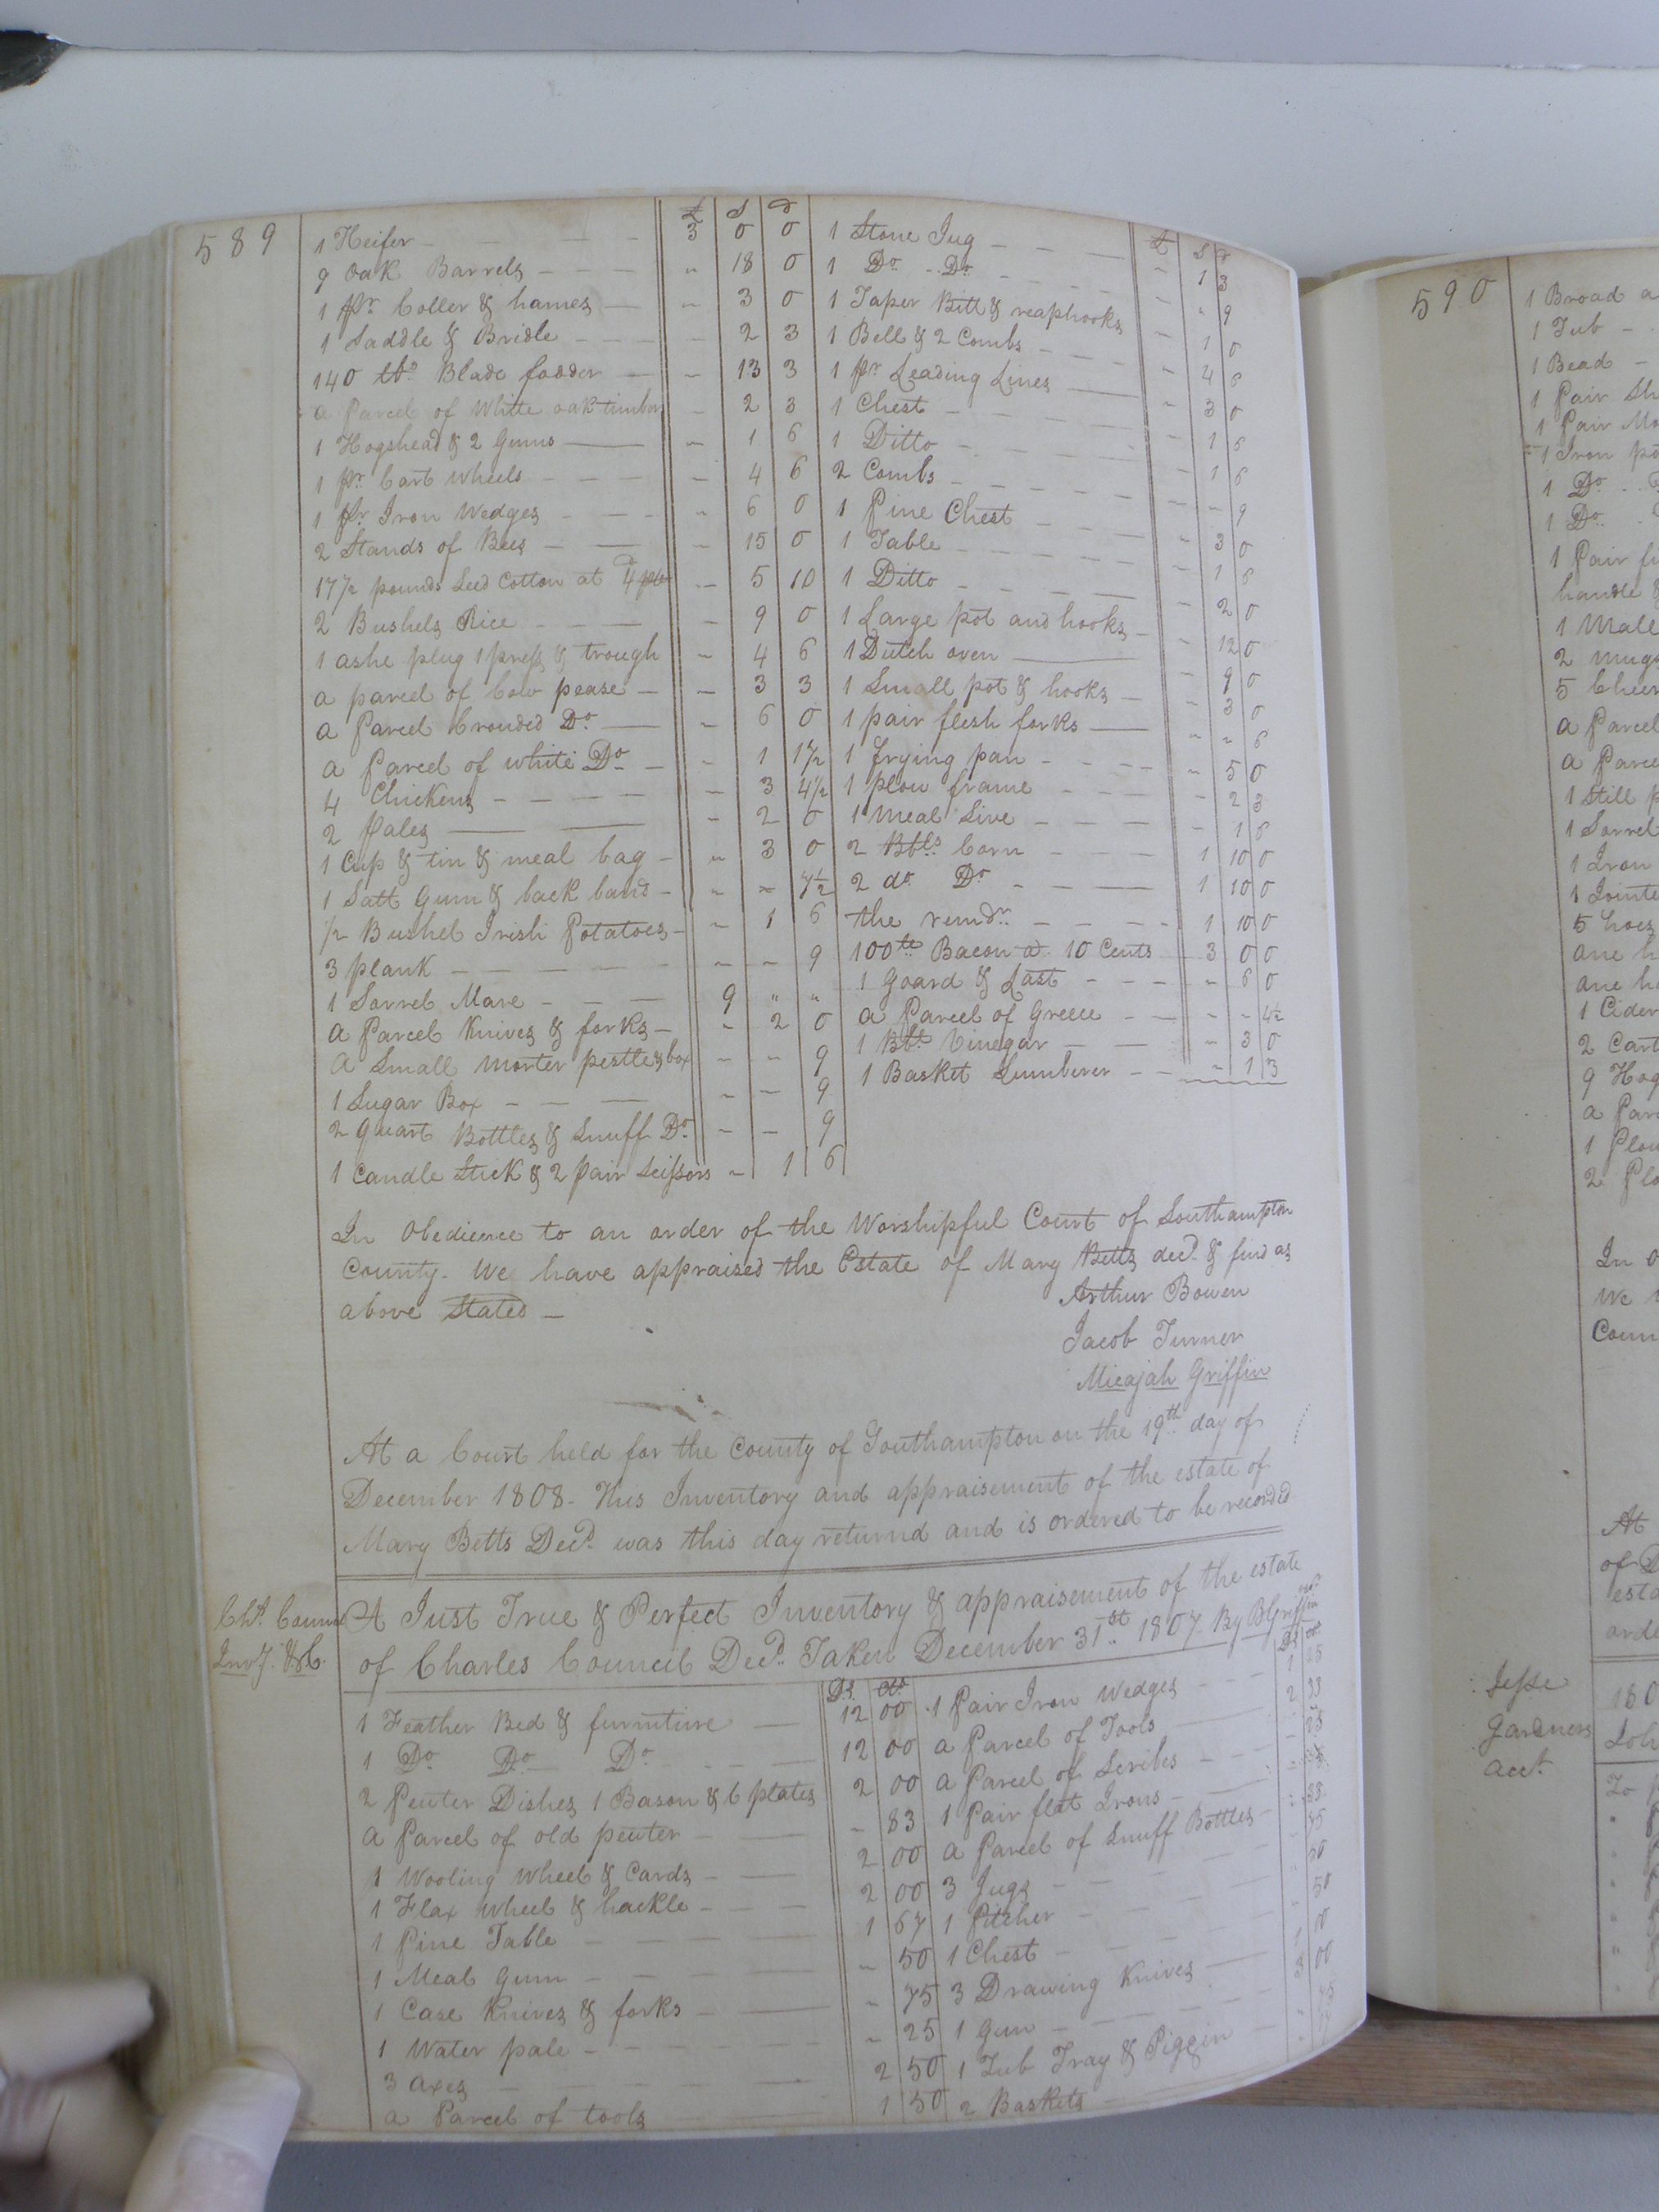 589
£ S d
1 Heifer - - - - 3 0 0
9 Oak Barrels - - - " 18 0
1 pr. Coller & hames - " 3 0
1 Saddle & Bridle - - - - 2 3
140 lbs Blade fodder - - 13 3
a Parcel of White oak timber - 2 3
1 Hogshead & 2 Gums - - 1 6
1 pr. Cart wheels - - - - 4 6
1 pr. Iron Wedges - - - " 6 0
2 Stands of Bees - - " 15 0
17½ pounds Seed Cotton at 4d - 5 10
2 Bushels Rice - - - - 9 0
1 ashe plug 1 press & trough - 4 6
a parcel of Cow pease - - 3 3
a Parcel Crouded Do - - 6 0
a Parcel of white Do - - 1 1½
4 Chickens - - - - - 3 4½
2 Pales - - - 2 0
1 Cup & tin & meal bag - " 3 0
1 Salt Gum & back band - " " 7½
½ Bushel Irish Potatoes - " 1 6
3 plank - - - - - - - 9
1 Sorrel Mare - - - 9 " "
a Parcel Knives & forks - - 2 0
A Small morter pestle & box - - 9
1 Sugar Box - - - - - 9
2 Quart Bottles & Snuff Do - - 9
1 Candle Stick & 2 pair Scissors " 1 6
£ S d
1 Stone Jug - - - " 1 3
1 Do. .. Do. - - - " " 9
1 Taper Bitt & reaphooks - 1 0
1 Bell & 2 Combs - - - " 4 6
1 pr Leading Lines - " 3 0
1 Chest - - - - - 1 6
1 Ditto - - - - - 1 6
2 Combs - - - - - - " 9
1 Pine Chest - - " 3 0
1 Table - - - - - " 1 6
1 Ditto - - - - - 2 0
1 Large pot and hooks - - 12 0
1 Dutch oven - - 9 0
1 Small pot & hooks - " 3 0
1 pair flesh forks - " " 6
1 frying pan - - - - " 5 0
1 plow frame - - - - 2 3
1 meal Sive - - - - 1 6
2 Bbls. Corn - - - 1 10 0
2 do. Do - - - 1 10 0
the remdr. - - - - 1 10 0
100 lb Bacon a 10 Cents - 3 0 0
1 Goard & Last - - - " 6 0
a Parcel of Greece - - - - 4½
1 Bbl Vinegar - - " 3 0
1 Basket Lumberer - - " 1 3
In Obedience to an order of the Worshipful Court of Southampton
County. We have appraised the Estate of Mary Betts decd. & find as
above Stated -
Arthur Bowen
Jacob Turner
Micajah Griffin
At a Court held for the County of Southampton on the 19th. day of
December 1808 - This Inventory and appraisement of the estate of
Mary Betts Decd. was this day returnd and is ordered to be recorded
A Just True & Perfect Inventory & appraisement of the estate
of Charles Council Decd. Taken December 31st. 1807 By B Griffin
1 Feather Bed & furniture - 12 00
1 Do Do - Do - - - 12 00
2 Peuter Dishes 1 Bason & 6 plates 2 00
a Parcel of old peuter - - - 83
1 Wooling Wheel & Cards - - 2 00
1 Flax Wheel & hackle - - - 2 00
1 Pine Table - - - - 1 67
1 Meal Gum - - - - " 50
1 Case Knives & forks - - " 75
1 Water pale - - - - - - 25
3 Axes - - - - 2 50
a Parcel of tools 1 50
1 Pair Iron Wedges - - 1 25
a Parcel of Tools
a Parcel of Scribes - -
1 Pair flat Irons - -
a Parcel of Snuff Bottles -
3 Jugs - -
1 Pitcher - - 50
1 Chest - - 50
3 Drawing Knives - 1 00
1 Gun - - - 3 00
1 Tub Tray & Piggin
2 Baskets
590
1 Broad a
1 Tub -
1 Bead -
1 Pair
1 Pair
1 Iron
1 Do. ..
1 Do. .
1 Pair
handle
1 Mall
2 mugs
5
a Parcel
a Parce
1 Still
1 Sorrel
1 Iron
1 Jointe
5 hoes
one h
one h
1 Cider
2 Cart
9 Hog
a Par
1 Plow
2 Plo
In O
We
Coun
At
of D
esta
orde
Jesse
Gardners
acct.
180
To